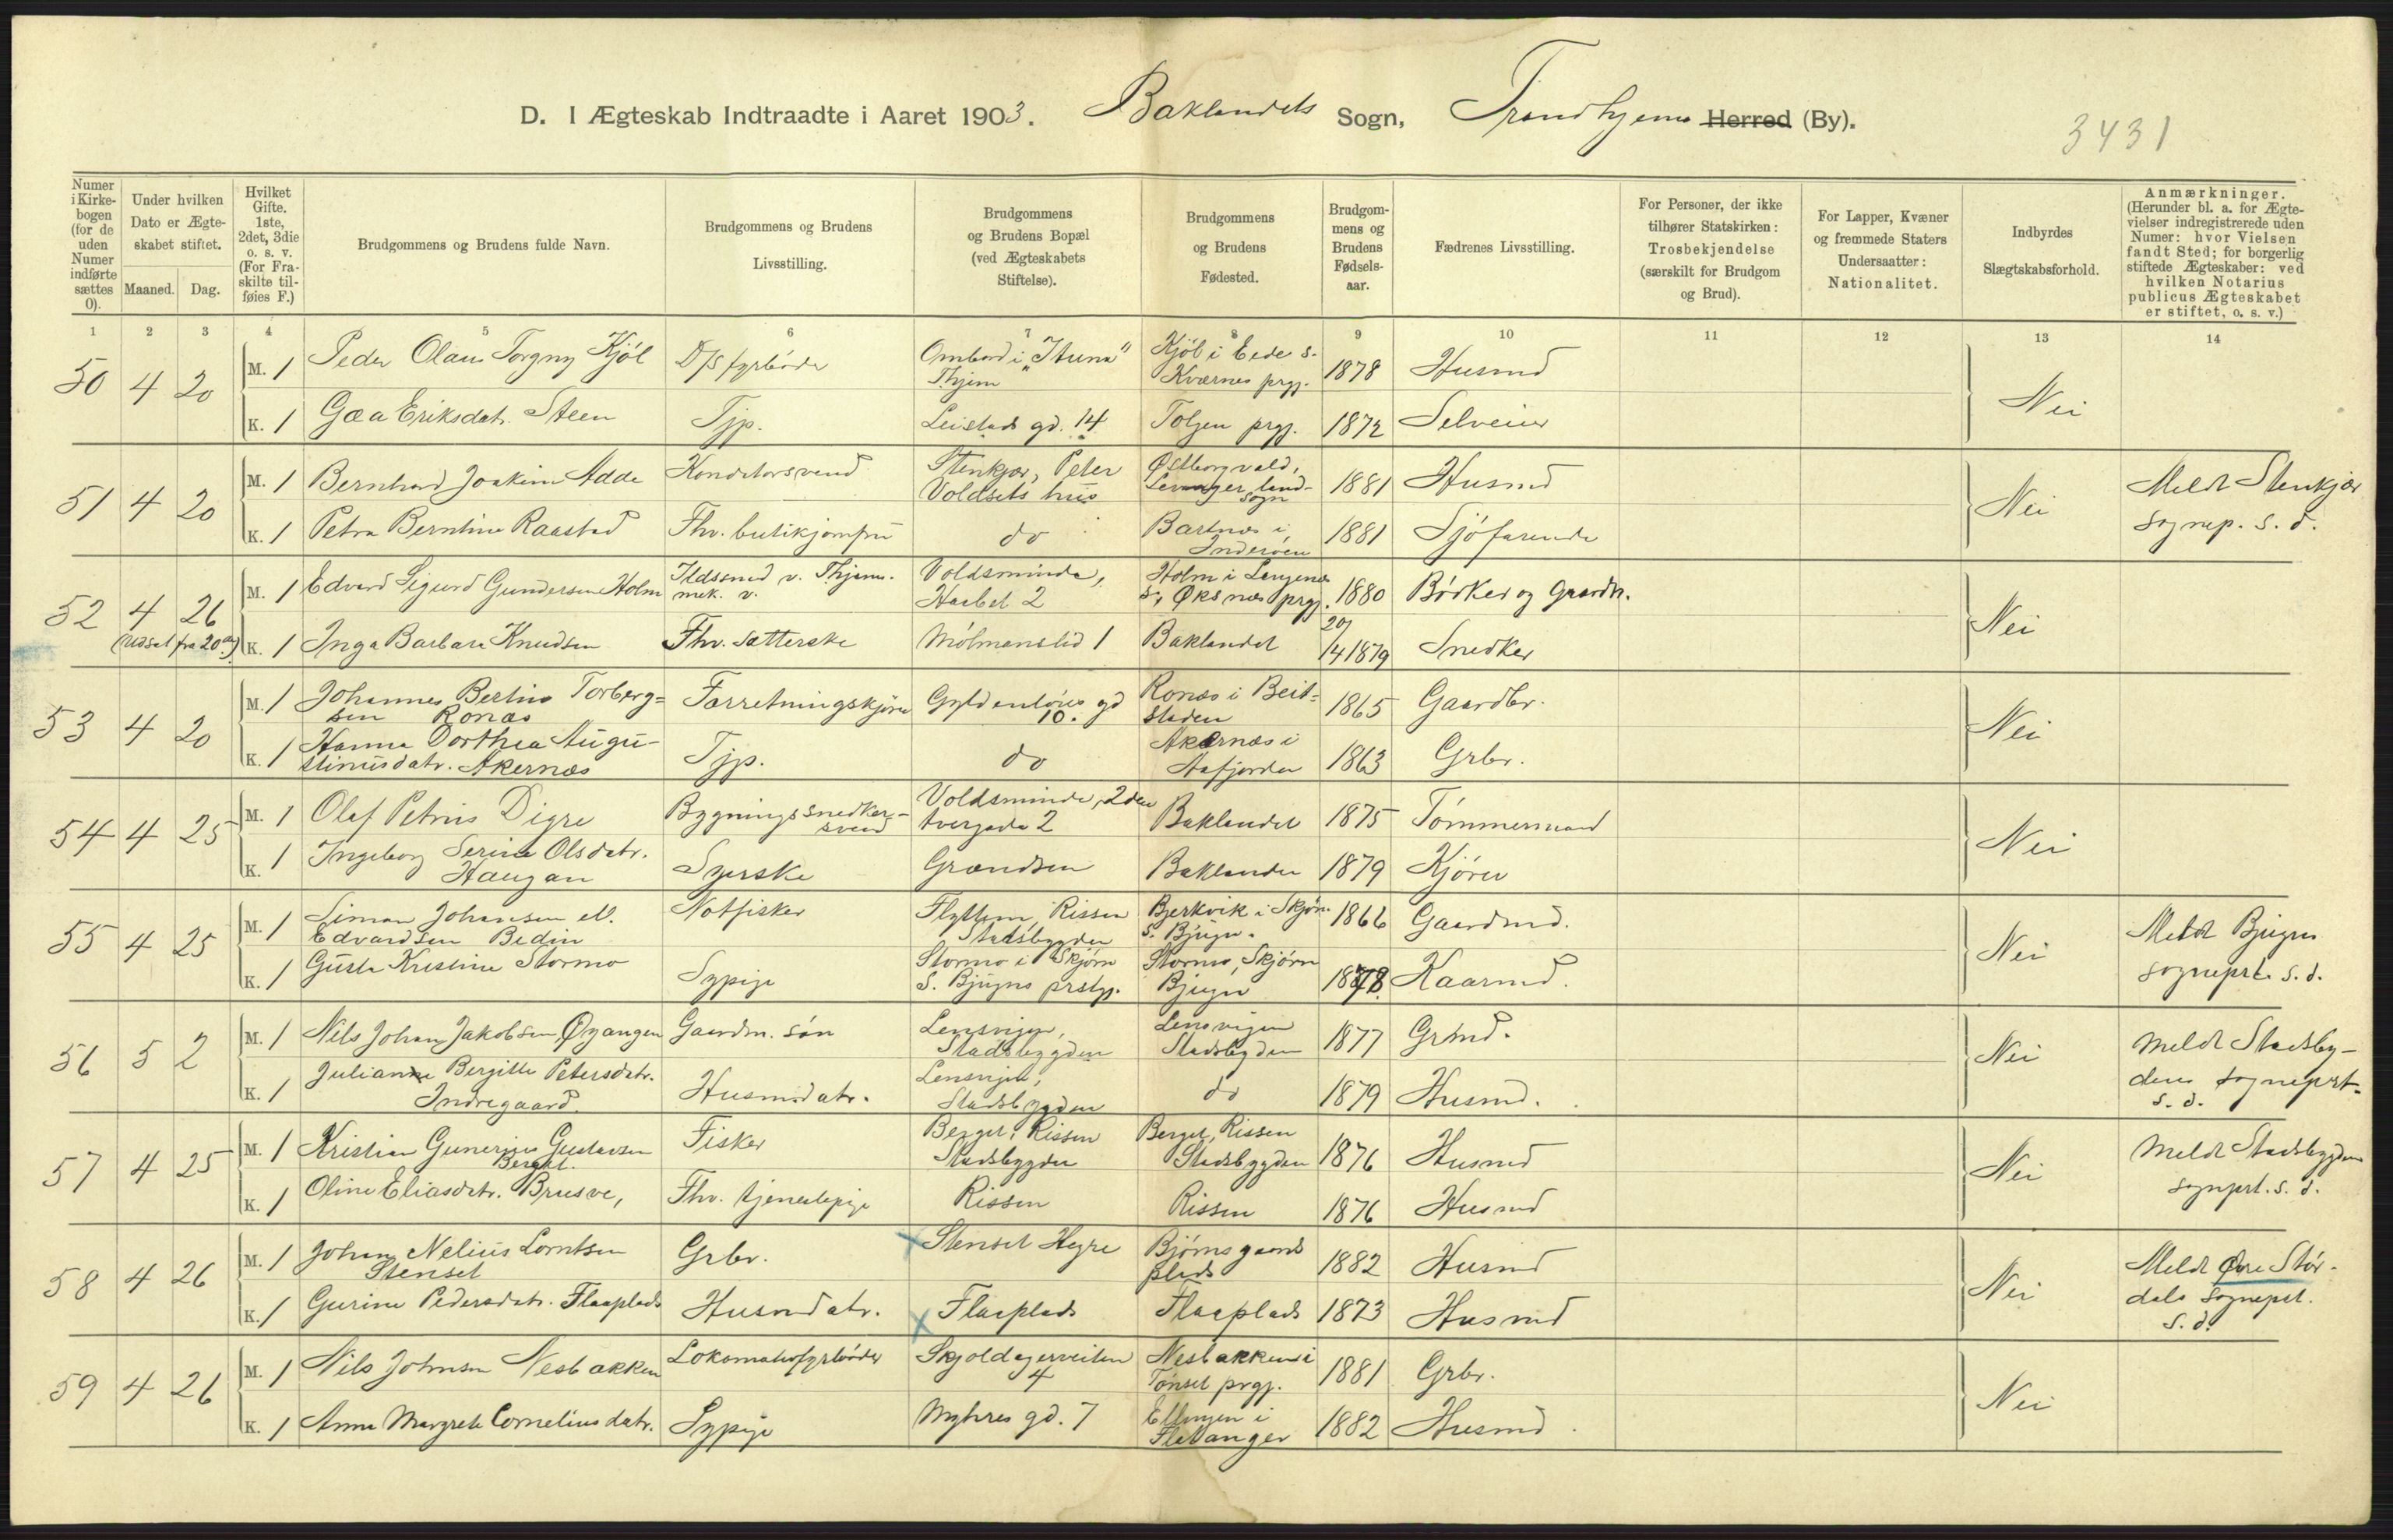 D. I Ægteskab Indtraadte i Aaret 1903. Baklandets Sogn, Trondhjems Herred (By).
3431
Numer i Kirkebogen (for de uden Numer indførte sættes 0).
Under hvilken Dato er Ægteskabet stiftet.
Maaned. Dag.
Hvilket Gifte. 1ste, 2det, 3die o. s. v. (For Fraskilte tilføies F.)
Brudgommens og Brudens fulde Navn.
Brudgommens og Brudens Livsstilling.
Brudgommens og Brudens Bopæl (ved Ægteskabets Stiftelse).
Brudgommens og Brudens Fødested.
Brudgommens og Brudens Fødselsaar.
Fædrenes Livsstilling.
For Personer, der ikke tilhører Statskirken: Trosbekjendelse (særskilt for Brudgom og Brud).
For Lapper, Kvæner og fremmede Staters Undersaatter: Nationalitet.
Indbyrdes Slægtskabsforhold.
Anmærkninger. (Herunder bl. a. for Ægtevielser indregistrerede uden Numer: hvor Vielsen fandt Sted; for borgerlig stiftede Ægteskaber: ved hvilken Notarius publicus Ægteskabet er stiftet, o. s. v.)
1 2 3 4 5 6 7 8 9 10 11 12 13 14
50 4 20 M. 1 Peder Olaus Torgny Kjöl D/S fyrböder Ombord i "Ituna" Thjem Kjöl i Eede s. Kværnes prgj. 1878 Husmd Nei
K. 1 Gæa Eriksdatr. Steen Tjp. Leistads gd. 14 Tolgen prgj. 1872 Selveier
51 4 20 M. 1 Bernhard Joakim Adde Konditorsvend Stenkjær, Peter Voldsets hus Østborgvald, Levanger landsogn 1881 Husmd Nei Meldt Stenkjær sognep. s. d.
K. 1 Petra Berntine Raastad Fhv. butikjomfru do Bartnes i Inderöen 1881 Sjöfarende
52 4 26 (Udsat fra 20de) M. 1 Edvard Sigurd Gundersen Holm Ildsmed v. Thjems. mek. v. Voldsminde, Haabet 2 Holm i Langenes s., Øksnes prgj. 1880 Bödker og Gaardbr. Nei
K. 1 Inga Barbara Knudsen Fhv. Sætterske Mölmanslid 1 Baklandet 20/14 1879 Snedker
53 4 20 M. 1 Johannes Bertins Torbergsen Ronæs Forretningskjörer Gyldenlöves gd 10. Ronæs i Beitstaden 1865 Gaardbr. Nei
K. 1 Hanna Dorthea Augustinusdatr. Akernæs Tjp. do Akernæs i Aafjorden 1863 Grbr.
54 4 25 M. 1 Olaf Petrus Digre Bygningssnedkersvend Voldsminde, 2den tvergade 2 Baklandet 1875 Tömmermand Nei
K. 1 Ingeborg Serine Olsdatr. Haugan Syerske Grændsen Baklandet 1879 Kjörer
55 4 25 M. 1 Simon Johansen el. Edvardsen Bedin Notfisker Flyttem, Rissen Stadsbygden Bjerkvik i Skjörn s. Bjugn. 1866 Gaardmd. Nei Meldt Bjugns sogneprt. s. d.
K. 1 Gusta Kristine Stormo Sypige Stormo i Skjörn S. Bjugns prstgj. Stormo, Skjörn Bjugn 1878 Kaarmd.
56 5 2 M. 1 Nils Johan Jakobsen Øyangen Gaardm. sön Lensvigen, Stadsbygden Lensvigen Stadsbygden 1877 Grmd. Nei Meldt Stadsbydens sogneprt. s. d.
K. 1 Julianne Bergitte Petersdatr. Indregaard. Husmdatr. Lensvigen, Stadsbygden do 1879 Husmd.
57 4 25 M. 1 Kristian Gunerius Gustavsen Berget. Fisker Berget, Rissen Stadsbygden Berget, Rissen Stadsbygden 1876 Husmd Nei Meldt Stadsbygdens sognprt. s. d.
K. 1 Oline Eliasdtr. Brusve, Fhv. tjenestepige Rissen Rissen 1876 Husmd
58 4 26 M. 1 Johan Nelius Lorntsen Stenset Grbr. x Stenset Hegre Björnsgaards plads 1882 Husmd Nei Meldt Øvre Stördals sogneprt. s. d.
K. 1 Gurine Pedersdatr. Flaaplads Husmdatr. x Flaaplads Flaaplads 1873 Husmd
59 4 26 M. 1 Nils Johnsen Nesbakken Lokomotivfyrböder Skjoldagerveiten 4 Nesbakken i Tönset prgj. 1881 Grbr. Nei
K. 1 Anna Margrete Corneliusdatr. Sypige Myhres gd. 7 Ellingen i Flatanger 1882 Husmd